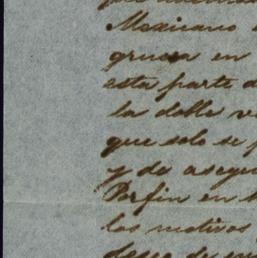 Mexicano
en
esta parte d
la doble v
que solo se p
y de asegu
Porfin en
los motivos